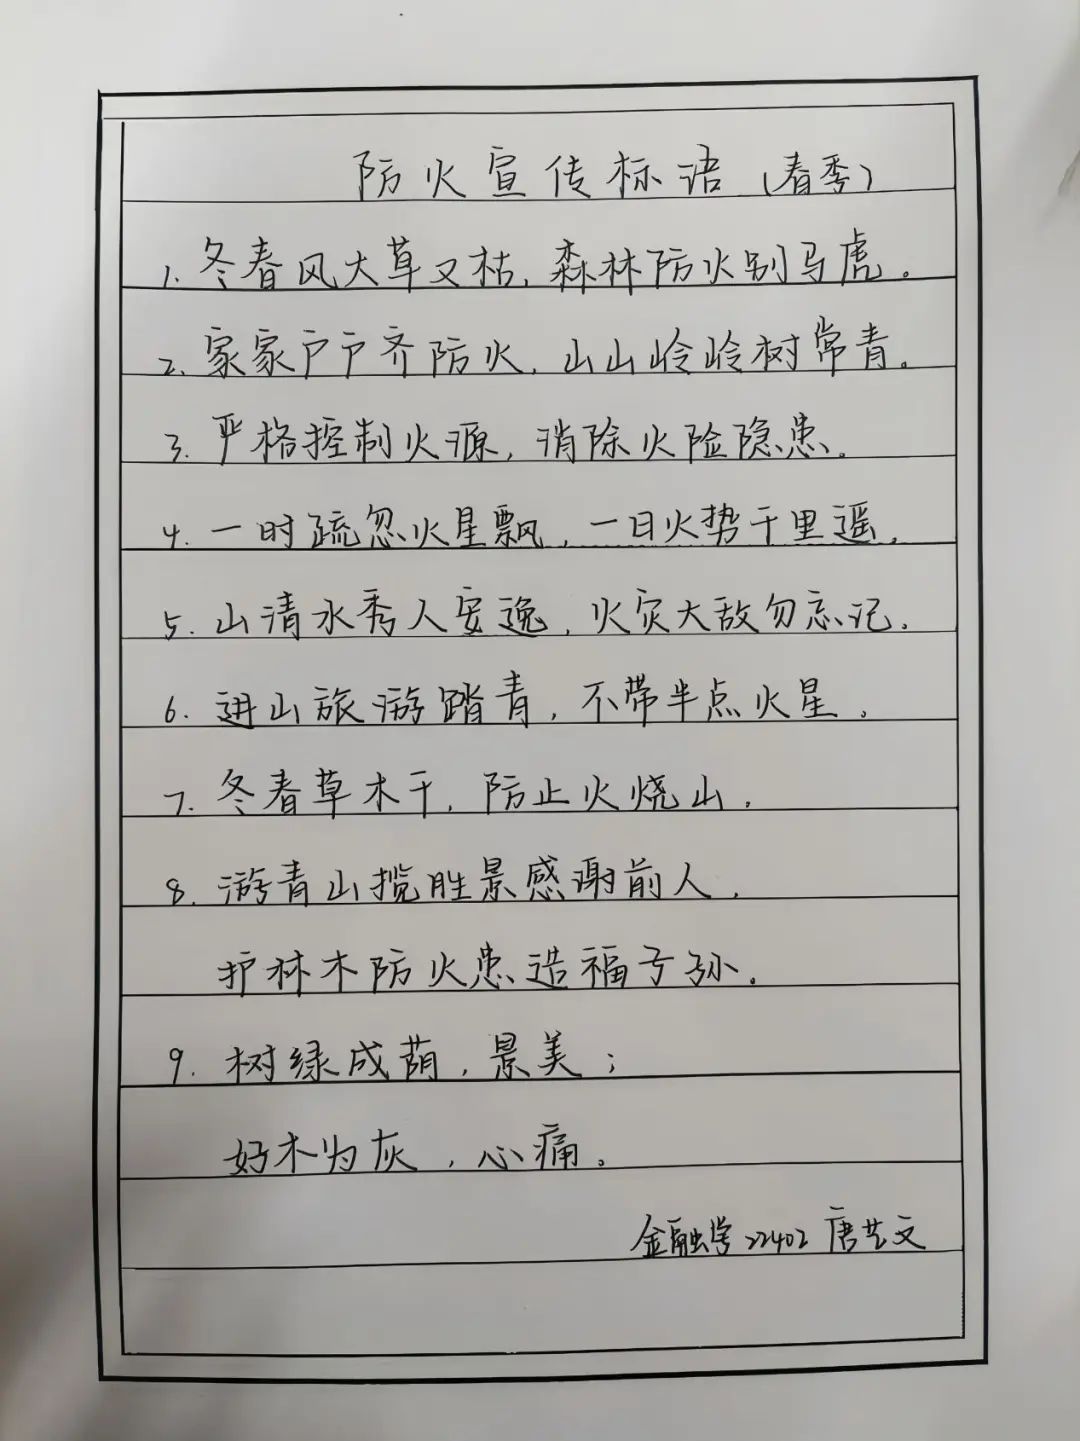 防火宣传标语（春季）
1. 冬春风大草又枯，森林防火别马虎。
2. 家家户户齐防火，山山岭岭树常青。
3. 严格控制火源，消除火险隐患。
4. 一时疏忽火星飘，一日火势千里遥。
5. 山清水秀人安逸，火灾大敌勿忘记。
6. 进山旅游踏青，不带半点火星。
7. 冬春草木干，防止火烧山。
8. 游青山揽胜景感谢前人，
护林木防火患造福子孙。
9. 树绿成荫，景美；
好木为灰，心痛。
金融学22402 唐艺文